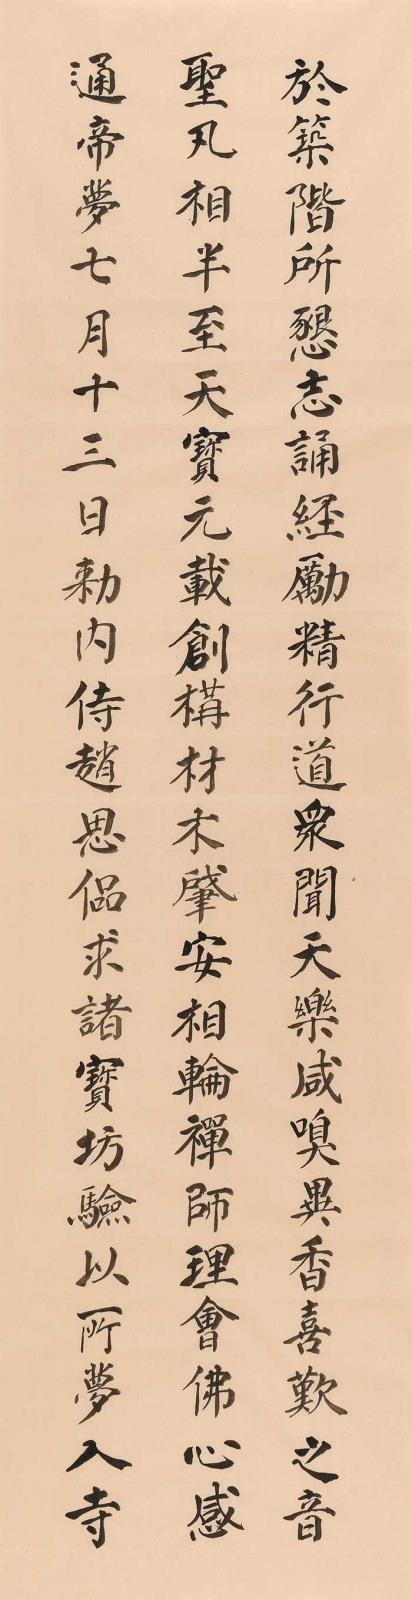 於築階所懇志誦經勵精行道衆聞天樂咸嗅異香喜歎之音
聖凡相半至天寶元載創構材木肇安相輪禪師理會佛心感
通帝夢七月十三日勑内侍趙思侶求諸寶坊驗以所夢入寺